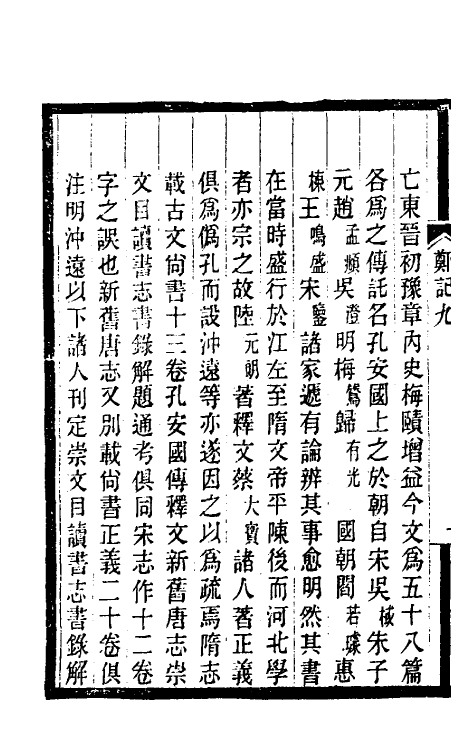 亡東晉初豫章內史梅賾增益今文爲五十八篇
各爲之傳託名孔安國上之於朝自宋吳棫朱子
元趙孟頫吳澄明梅鷟歸有光 國朝閻若璩惠
棟王鳴盛宋鑒諸家遞有論辨其事愈明然其書
在當時盛行於江左至隋文帝平陳後而河北學
者亦宗之故陸元朗著釋文蔡大寶諸人著正義
俱爲僞孔而設沖遠等亦遂因之以爲疏焉隋志
載古文尙書十三卷孔安國傳釋文新舊唐志崇
文目讀書志書錄解題通考俱同宋志作十二卷
字之誤也新舊唐志又別載尙書正義二十卷俱
注明沖遠以下諸人刊定崇文目讀書志書錄解
鄭記九